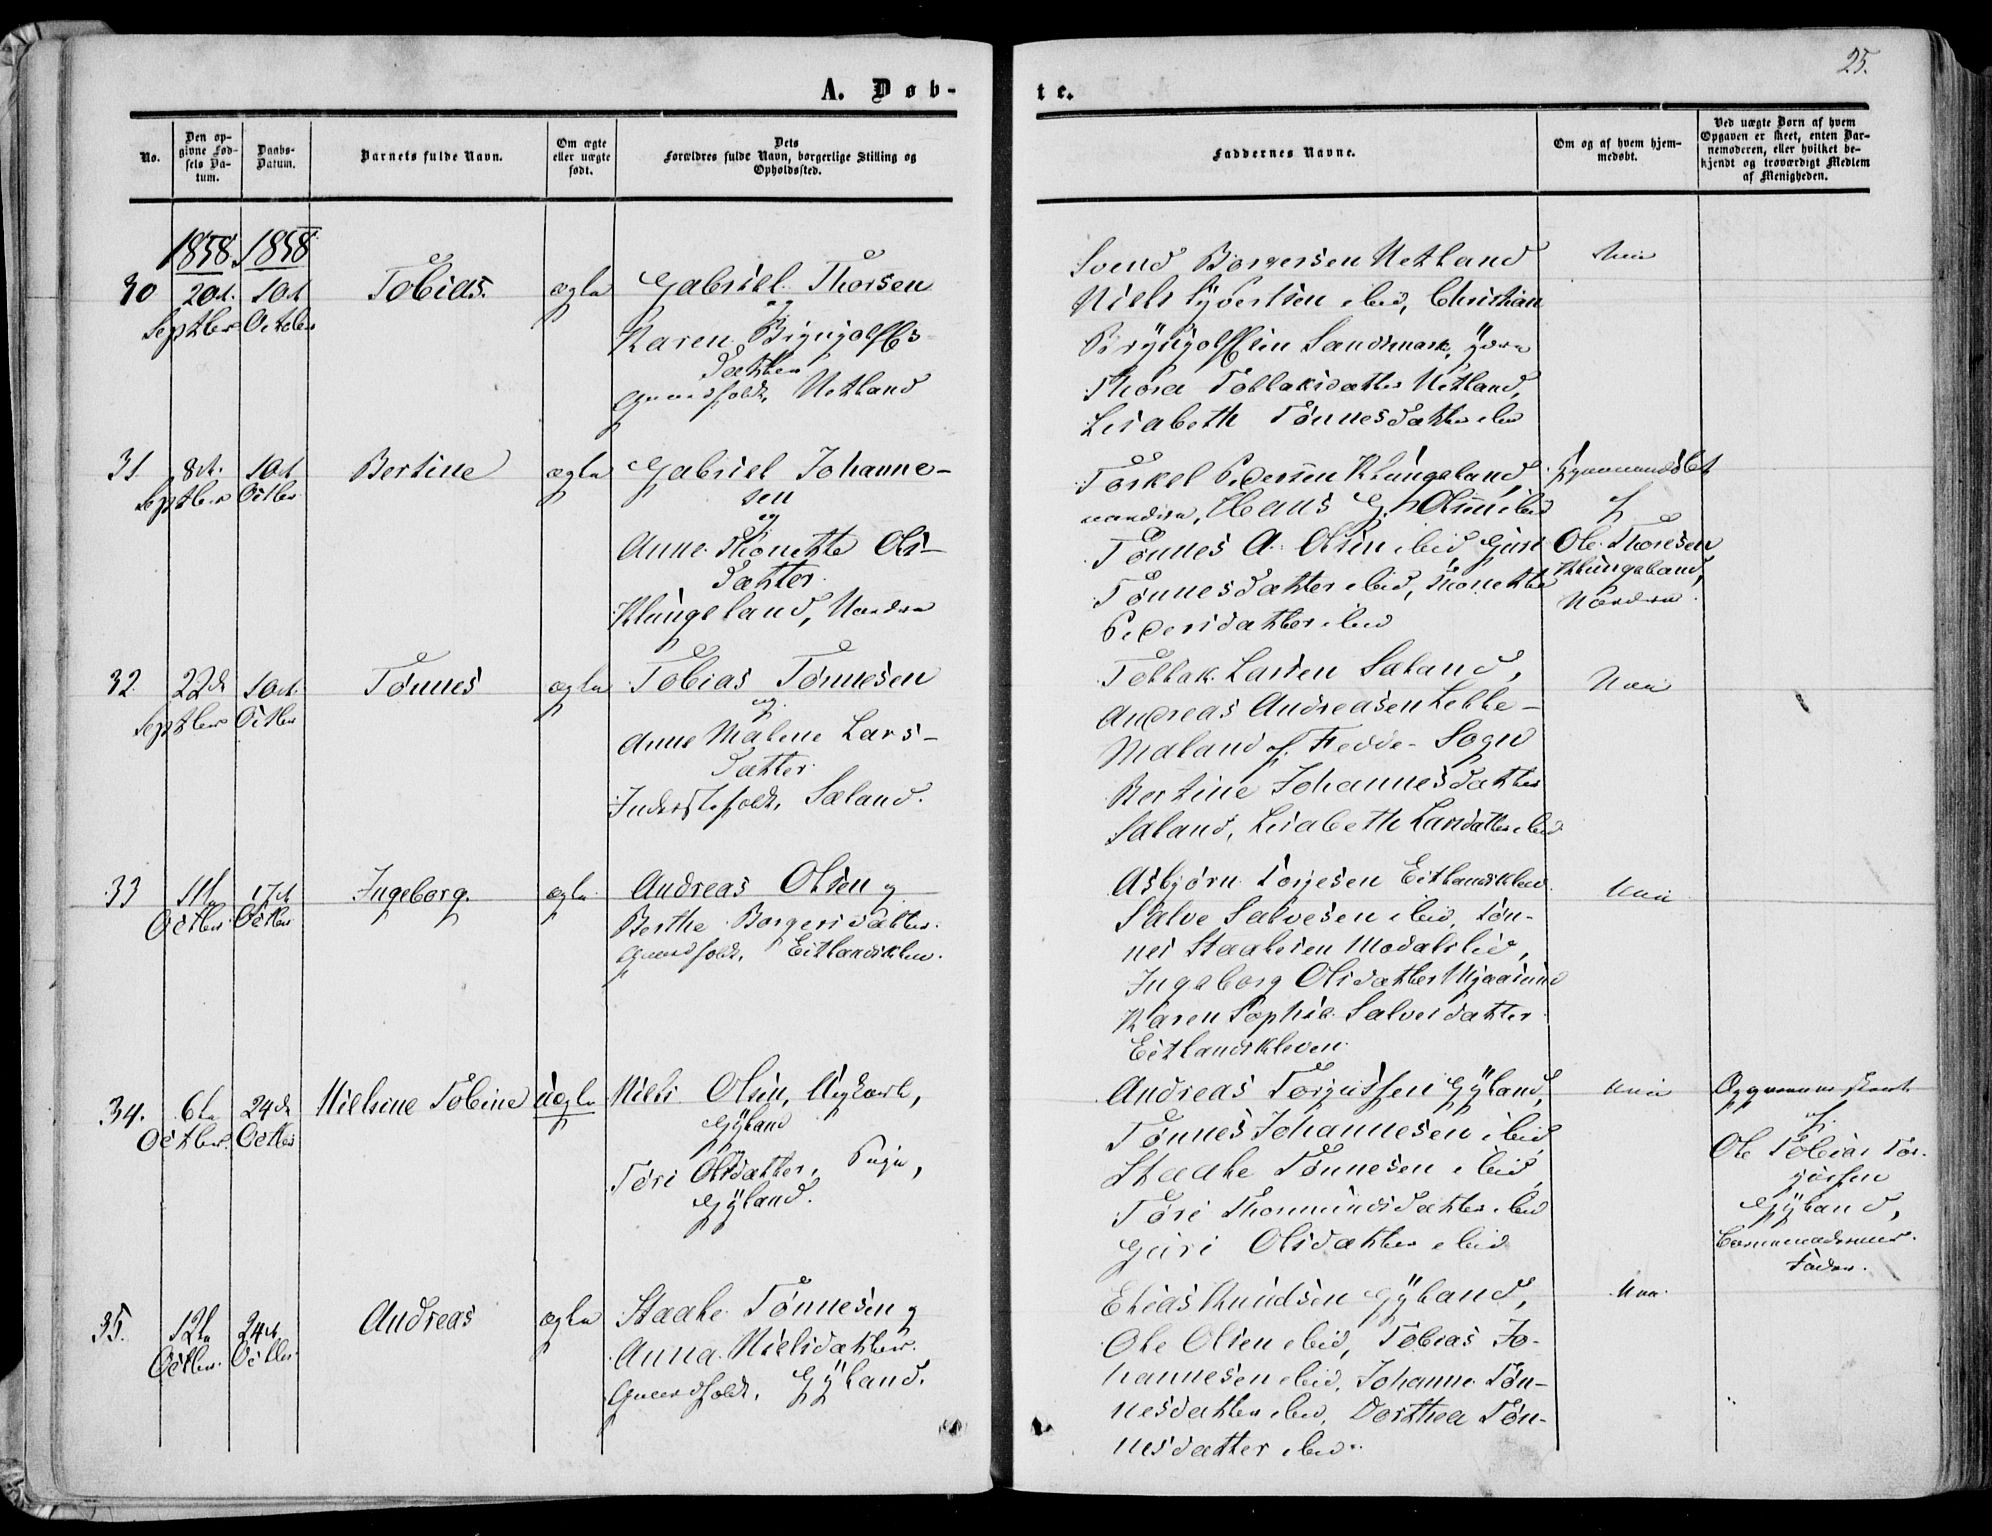 25.
A. Døb-
te.
No.
Den op-
givne Fød-
sels Da-
tum.
Daabs-
Datum.
Barnets fulde Navn.
Om ægte
eller uægte
født.
Dets
Forældres fulde Navn, borgerlige Stilling og
Opholdssted.
Faddernes Navne.
Om og af hvem hjem-
medøbt.
Ved uægte Børn af hvem
Opgaven er skeet, enten Bar-
nemoderen, eller hvilket be-
kjendt og troværdigt Medlem
af Menigheden.
1858. 1858
30
20de
Septber
10de
October
Tobias.
ægte
Gabriel Thorsen
og
Karen Bryngolfs-
datter
Gaardfolk, Netland
Svend Borgersen Netland
Niels Syvertsen ibid, Christian
Bryngolfsen Sandsmark,
Thora Tollaksdatter Netland,
Lisabeth Tønnesdatter ibid
Nei
31.
8de
Septber
10de
Octber
Bertine
ægte
Gabriel Johanne-
sen
og
Anne Thonette Ols-
datter
Klungeland, Nordre
Torkel Pedersen Klungeland,
nordre, Hans G. Olsen ibid
Tønnes A. Olsen ibid, Guri
Tønnesdatter ibid, Thonette
Pedersdatter ibid
Hjemmedøbt
af
Ole Thoresen
Klungeland,
Nordre.
32.
22de
Septber
10de
Octber
Tønnes
ægte
Tobias Tønnesen
og
Anne Malene Lars-
datter
Inderstfolk, Sæland.
Tollak Larsen Sæland,
Andreas Andreasen Lille-
Maland af Fedde-Sogn
Bertine Johannesdatter
Sæland, Lisabeth Larsdatter ibid
Nei
33
1te
Octber
17de
Octber
Ingeborg.
ægte
Andreas Olsen og
Berthe Borgersdatter.
Gaardfolk, Eitlandsklev.
Asbjørn Torjesen Eitlandsklev.
Salve Salvesen ibid, Tøn-
nes Staalesen Modalsli,
Ingeborg Olsdatter
Karen Sophie Salvesdatter
Eitlandskleven.
Nei
34.
6te
Octber.
24de
Octber
Nielsine Tobine
uægte
Niels Olsen, Ungkarl,
Gyland
og
Tøri Olsdatter, Pige,
Gyland.
Andreas Torjussen Gyland,
Tønnes Johannesen ibid,
Staale Tønnesen ibid,
Tøri Thormundsdatter ibid
Guri Olsdatter ibid
Nei
Opgaven skeet
af
Ole Tobias Tor-
jussen
Gyland,
Barnemoderens
Fader.
35.
12te
Octber.
24de
Octber
Andreas
ægte
Staale Tønnesen og
Anna Nielsdatter.
Gaardfolk, Gyland.
Elias Knudsen Gyland,
Ole Olsen ibid, Tobias Jo-
hannesen ibid, Johanne Tøn-
nesdatter ibid, Dorthea Tøn-
nesdatter ibid.
Nei.